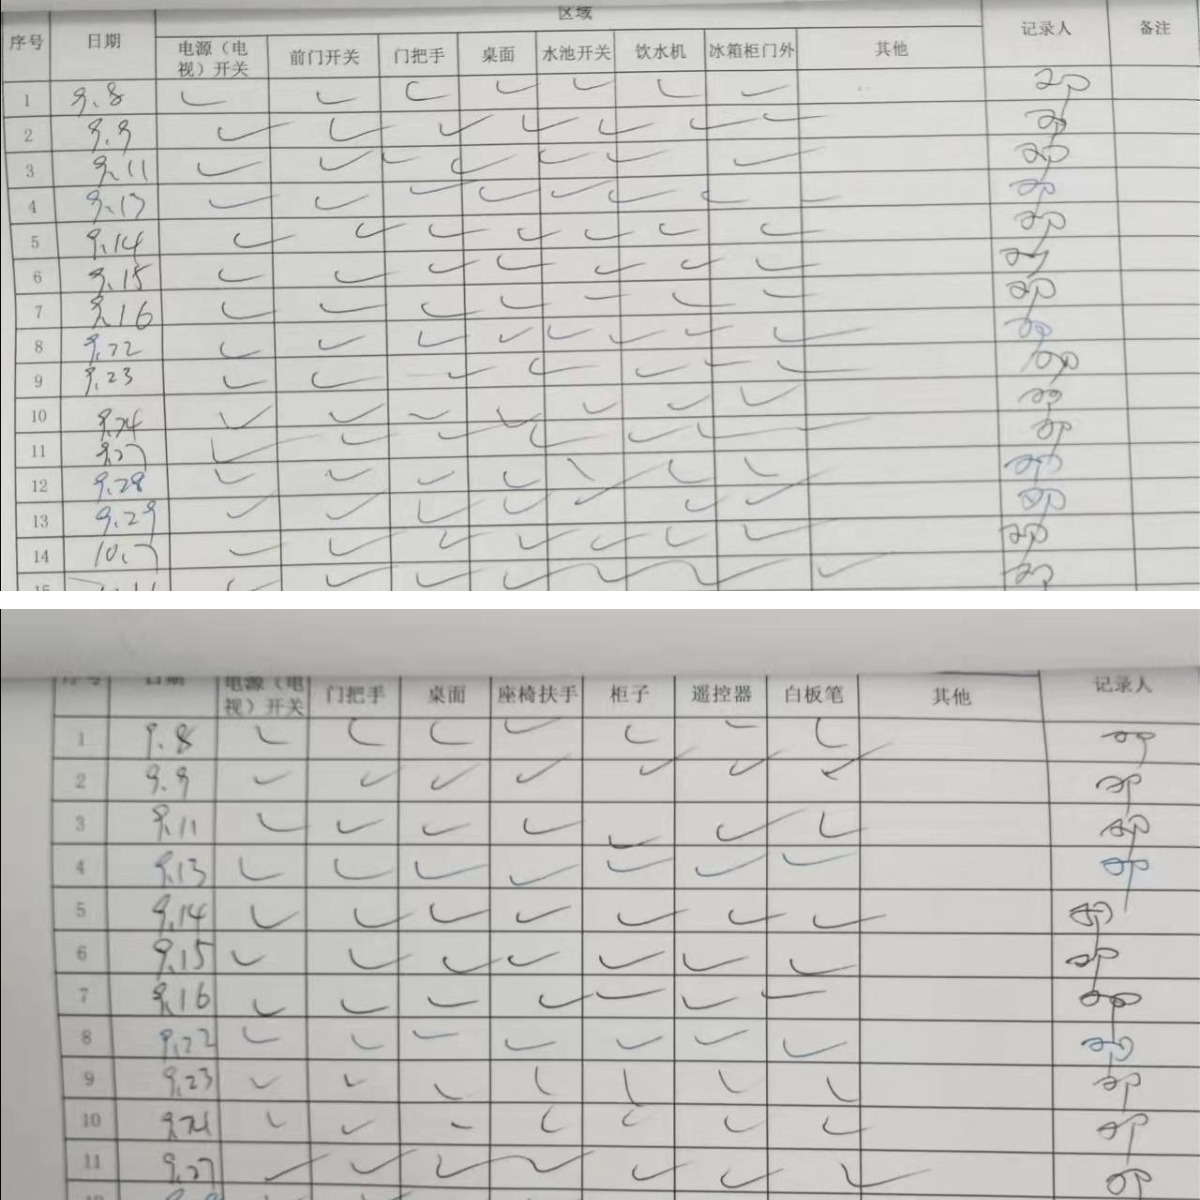 区域
序号 日期 电源（电视）开关 前门开关 门把手 桌面 水池开关 饮水机 冰箱柜门外 其他 记录人 备注
1 9.8 ✓ ✓ ✓ ✓ ✓ ✓ ✓
2 9.9 ✓ ✓ ✓ ✓ ✓ ✓ ✓
3 9.11 ✓ ✓ ✓ ✓ ✓ ✓ ✓
4 9.13 ✓ ✓ ✓ ✓ ✓ ✓ ✓
5 9.14 ✓ ✓ ✓ ✓ ✓ ✓ ✓
6 9.15 ✓ ✓ ✓ ✓ ✓ ✓ ✓
7 9.16 ✓ ✓ ✓ ✓ ✓ ✓ ✓
8 9.22 ✓ ✓ ✓ ✓ ✓ ✓ ✓
9 9.23 ✓ ✓ ✓ ✓ ✓ ✓
10 9.24 ✓ ✓ ✓ ✓ ✓ ✓ ✓
11 9.27 ✓ ✓ ✓ ✓ ✓ ✓
12 9.28 ✓ ✓ ✓ ✓ ✓ ✓ ✓
13 9.29 ✓ ✓ ✓ ✓ ✓ ✓ ✓
14 10.7 ✓ ✓ ✓ ✓ ✓ ✓ ✓
15 ✓ ✓ ✓ ✓ ✓ ✓ ✓
序号 日期 电源（电视）开关 门把手 桌面 座椅扶手 柜子 遥控器 白板笔 其他 记录人
1 9.8 ✓ ✓ ✓ ✓ ✓ ✓ ✓
2 9.9 ✓ ✓ ✓ ✓ ✓ ✓ ✓
3 9.11 ✓ ✓ ✓ ✓ ✓ ✓ ✓
4 9.13 ✓ ✓ ✓ ✓ ✓ ✓ ✓
5 9.14 ✓ ✓ ✓ ✓ ✓ ✓ ✓
6 9.15 ✓ ✓ ✓ ✓ ✓ ✓ ✓
7 9.16 ✓ ✓ ✓ ✓ ✓ ✓ ✓
8 9.22 ✓ ✓ ✓ ✓ ✓ ✓ ✓
9 9.23 ✓ ✓ ✓ ✓ ✓ ✓ ✓
10 9.24 ✓ ✓ ✓ ✓ ✓ ✓ ✓
11 9.27 ✓ ✓ ✓ ✓ ✓ ✓ ✓